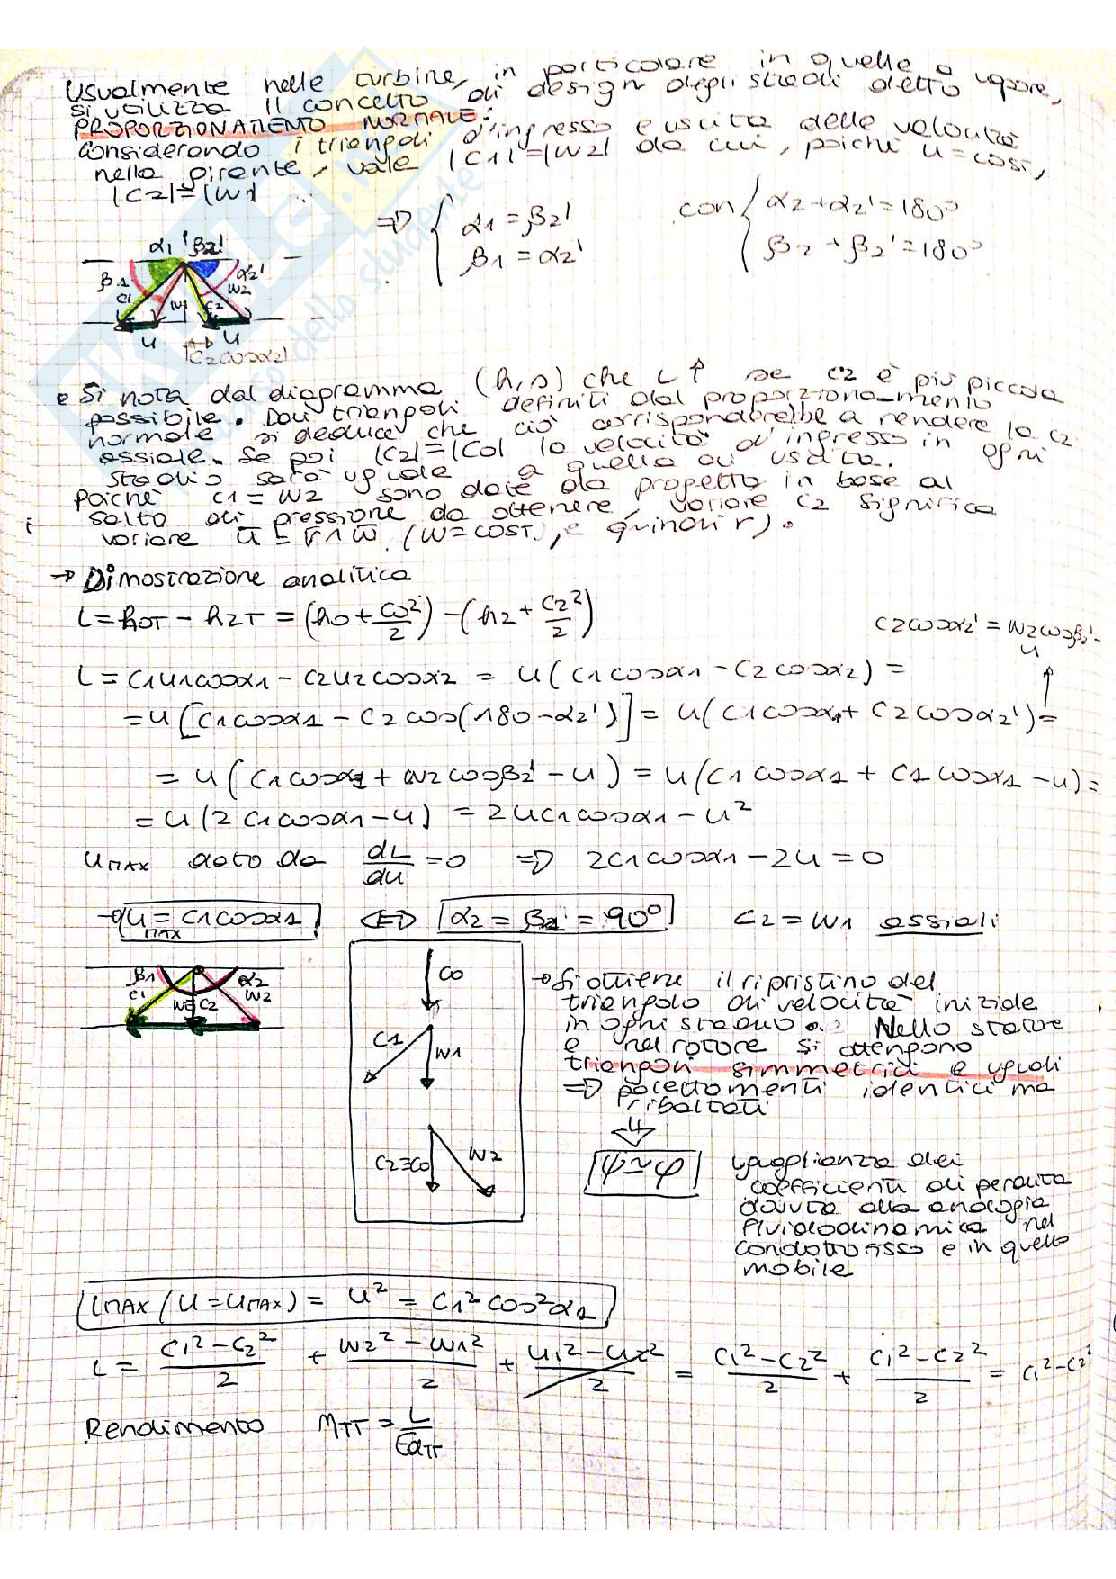 Usualmente nelle turbine, in particolare in quelle a vapore,
si utilizza il concetto di design degli stadi detto
PROPORZIONAMENTO NORMALE:
considerando i triangoli d'ingresso e uscita delle velocità
nella girante, vale |C1|=|W2| da cui, poiché u=cost,
|C2|=|W1|
⇒ { α1=β2'
β1=α2'
con { α2+α2'=180°
β2+β2'=180°
α1 β2'
β1 α2'
C1 W1 C2 W2
u u
|C2cosα2|
• Si nota dal diagramma (h,s) che L↑ se C2 è più piccola
possibile. Dai triangoli definiti dal proporziona-mento
normale si deduce che ciò corrisponderebbe a rendere la C2
assiale. Se poi |C2|=|C0| la velocità d'ingresso in ogni
stadio sarà uguale a quella di uscita.
Poiché C1=W2 sono date da progetto in base al
salto di pressione da ottenere, variare C2 significa
variare u=r∧ω (ω=cost, e quindi r).
→ Dimostrazione analitica
L=h0T-h2T=(h0+C0²/2)-(h2+C2²/2)
C2cosα2'=W2cosβ2'-
u
L=C1u1cosα1-C2u2cosα2 = u(C1cosα1-C2cosα2)=
=u[C1cosα1-C2cos(180-α2')]= u(C1cosα1+C2cosα2')=
=u(C1cosα1+W2cosβ2'-u)=u(C1cosα1+C1cosα1-u)=
=u(2C1cosα1-u) = 2uC1cosα1-u²
uMAX dato da dL/du=0 ⇒ 2C1cosα1-2u=0
uMAX=C1cosα1 ⇔ α2=β1=90° C2=W1 assiali
β1 α2
C1 W1 C2 W2
C0
C1 W1
C2≡C0 W2
→ Si ottiene il ripristino del
triangolo di velocità iniziale
in ogni stadio. Nello statore
e nel rotore si ottengono
triangoli simmetrici e uguali
⇒ palettamenti identici ma
ribaltati
ψ≃φ
Uguaglianza dei
coefficienti di perdita
dovuta alla analogia
fluidodinamica nel
condotto fisso e in quello
mobile
LMAX(u=uMAX)= u²=C1²cos²α1
L=(C1²-C2²)/2+(W2²-W1²)/2+(u1²-u2²)/2=(C1²-C2²)/2+(C1²-C2²)/2=C1²-C2²
Rendimento ηTT=L/EaTT